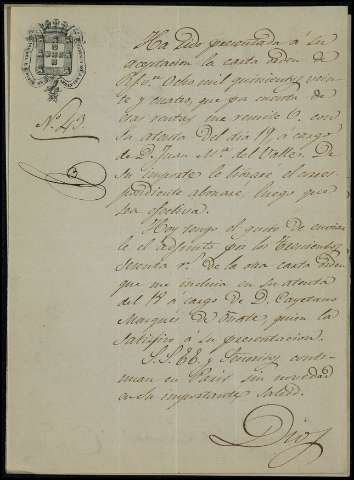 Ha sido presentada á su
aceptacion la carta orden de
ocho mil quinientos vein-
te y cuatro, que pa cuenta de
las rentas me remite V. con
Nº 43.
su atenta del dia 19 á cargo
de D. Juan Mª del Valle. De
su importe le haré el corres-
pondiente abonaré, luego que
sea efectiva.
Hoy tengo el gusto de enviar
le el adjunto por los
sesenta rˢ de la otra carta orden
que me incluia en su atenta
del 18 á cargo de D. Cayetano
Marqués de quien la
satisfizo á su presentacion.
S.S. EE. y conti-
nuan en Paris sin novedad
en la importante salud.
Dios